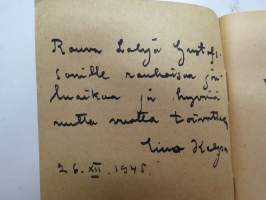 Rouva Gustafs-
sonille rauhaisaa jou-
luaikaa ja hyvää
uutta vuotta toivottaa
26. XII. 1945.